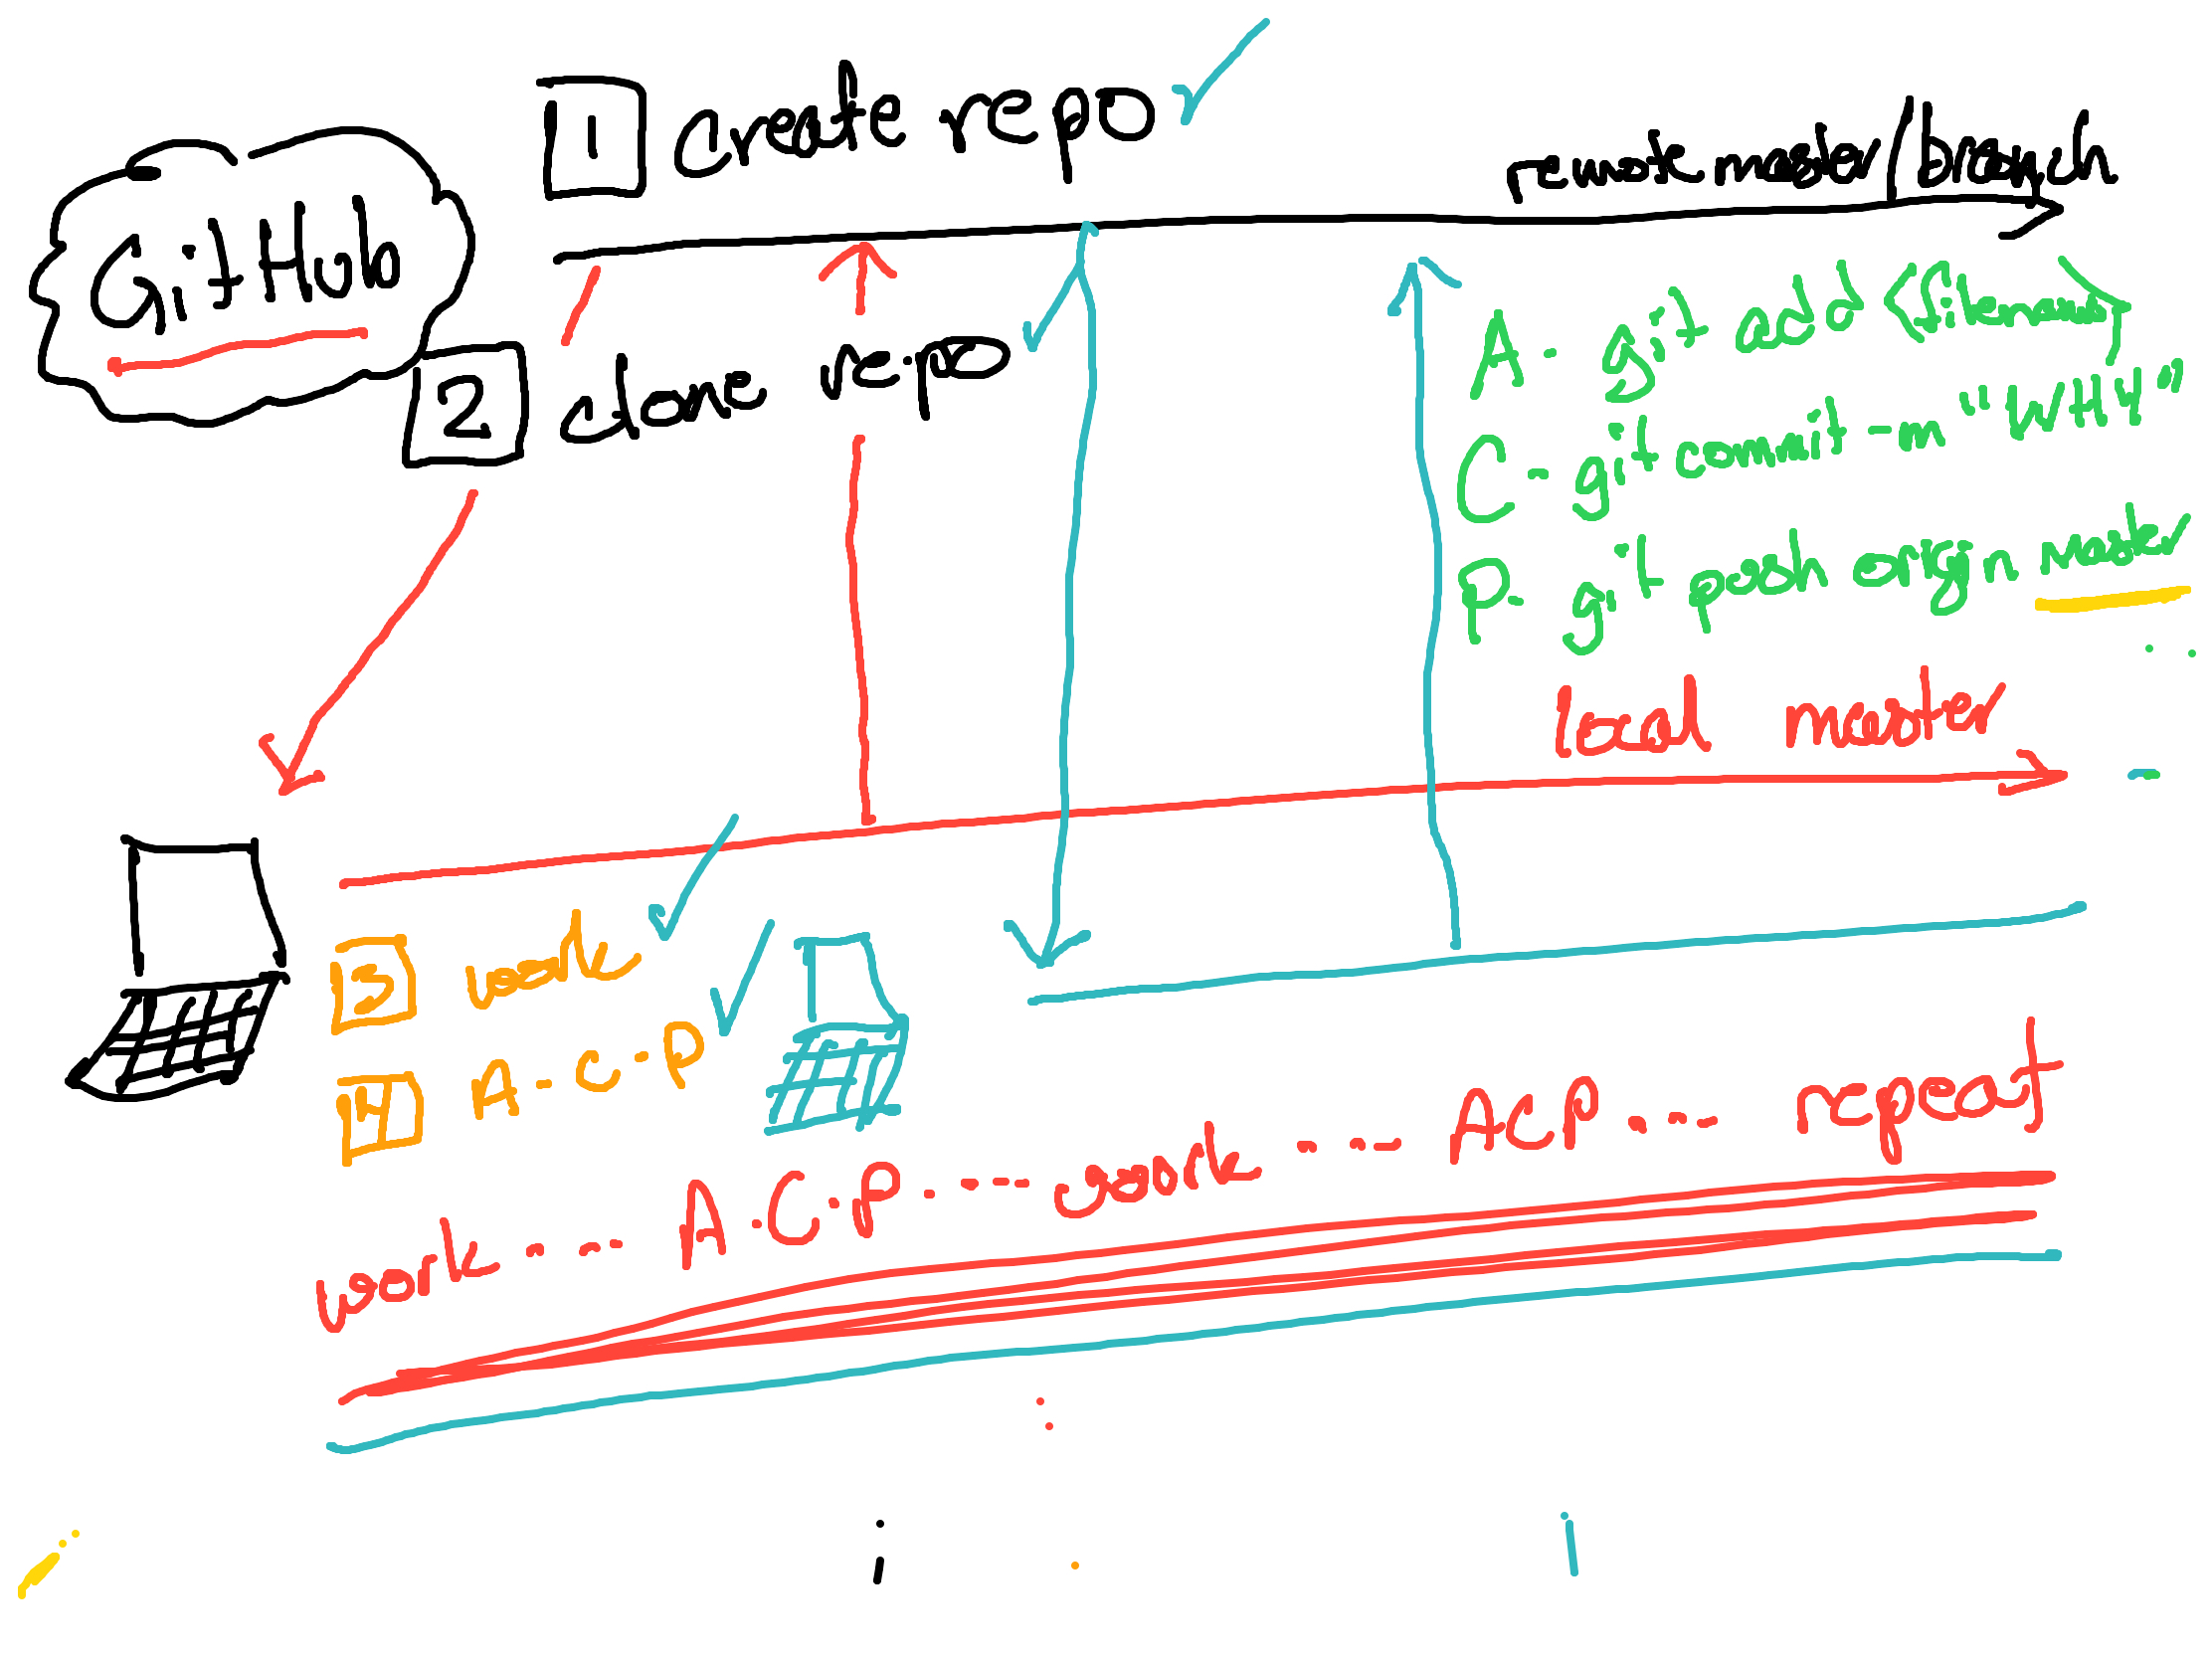 1 Create repo
remote master branch
GitHub
2 clone repo
A - git add <filename>
C - git commit -m "WHY"
P - git push origin master
local master
3 work
4 A - C - P
work - - - A . C . P . - - - work - - - - ACP - - - repeat